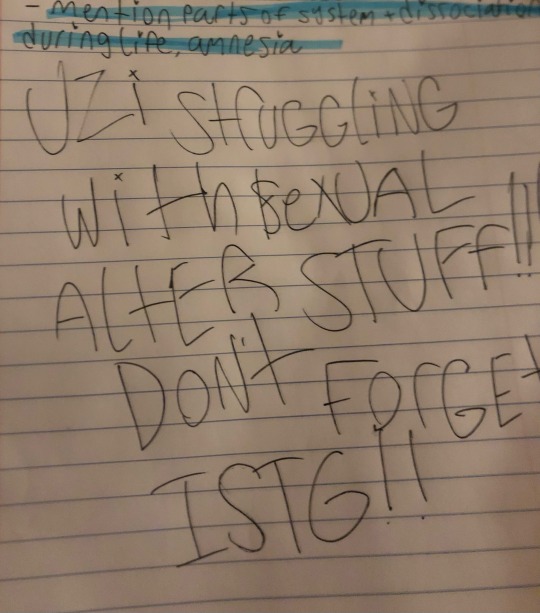 - mention parts of system + dissociation
during life, amnesia
UZi StrUGGliNG
With SeXUAL
AltER STUFF!!!
DON't FOrGEt
ISTG!!